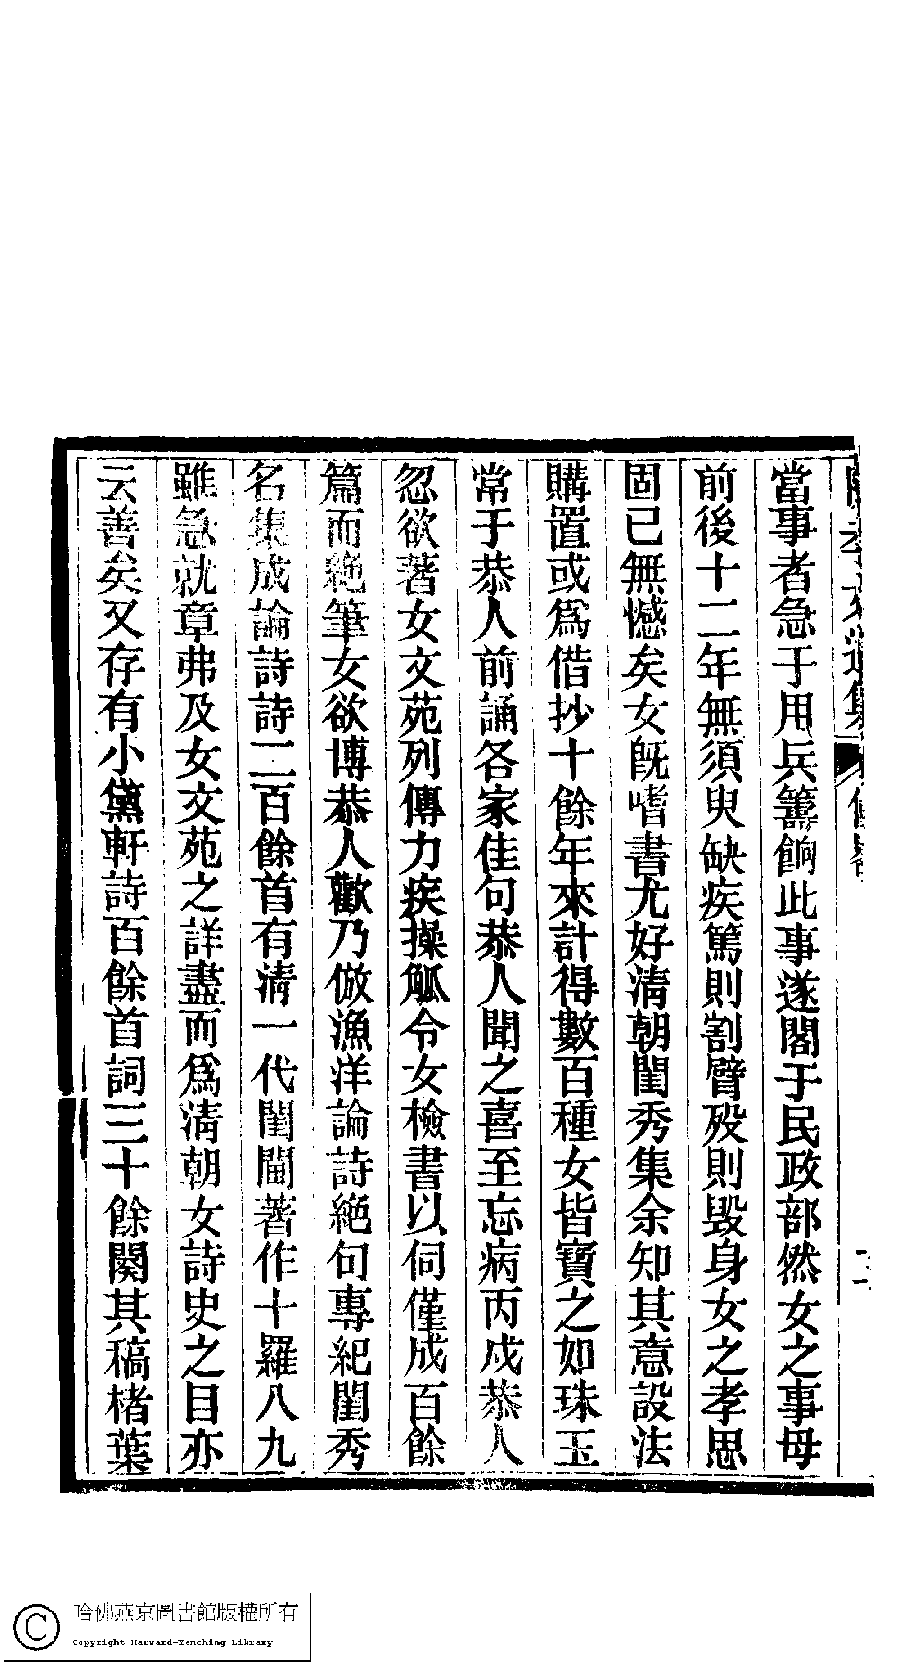 當事者急于用兵籌餉此事遂閣于民政部然女之事母
前後十二年無須臾缺疾篤則割臂歿則毀身女之孝思
固已無憾矣女旣嗜書尤好清朝閨秀集余知其意設法
購置或爲借抄十餘年來計得數百種女皆寶之如珠玉
常于恭人前誦各家佳句恭人聞之喜至忘病丙戌恭人
忽欲著女文苑列傳力疾操觚令女檢書以伺僅成百餘
篇而絶筆女欲博恭人歡乃倣漁洋論詩絶句專紀閨秀
名集成論詩詩二百餘首有清一代閨閫著作十羅八九
雖急就章弗及女文苑之詳盡而爲清朝女詩史之目亦
云善矣又存有小黛軒詩百餘首詞三十餘闋其稿楮葉
哈佛燕京圖書館版權所有
Copyright Harvard-Yenching Library